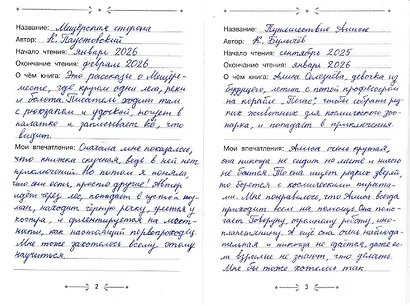 Название: Мещёрская сторона
Автор: К. Паустовский
Начало чтения: январь 2026
Окончание чтения: февраль 2026
О чём книга: Это рассказы о Мещёре –
месте, где кругом одни леса, реки
и болота. Писатель ходит там
с рюкзаком и удочкой, ночует в
палатке и записывает всё, что
видит.
Мои впечатления: Сначала мне показалось,
что книжка скучная, ведь в ней нет
приключений. Но потом я поняла,
что они есть, просто другие! Автор
идёт через лес, попадает в густой ту-
ман, находит чёрную речку, греется у
костра, и ориентируется на мест-
ности, как настоящий первопроходец.
Мне тоже захотелось всему этому
научиться.
2
Название: Путешествие Алисы
Автор: К. Булычёв
Начало чтения: сентябрь 2025
Окончание чтения: январь 2026
О чём книга: Алиса Селезнёва, девочка из
будущего, летит с папой профессором
на корабле "Пегас", чтобы собрать ред-
ких животных для космического зоо-
парка, и попадает в приключения.
Мои впечатления: Алиса очень крутая,
она никогда не сидит на месте и ничего
не боится. То она ищет редких зверей,
то борется с космическими пирата-
ми. Мне понравилось, что Алисе всегда
приходят все на помощь: они помо-
гают Говоруну, огромному роботу, ино-
планетянину. А ещё она очень наблюда-
тельная и никогда не сдаётся, даже ес-
ли взрослые не знают, что делать.
Мне бы тоже хотелось так.
3